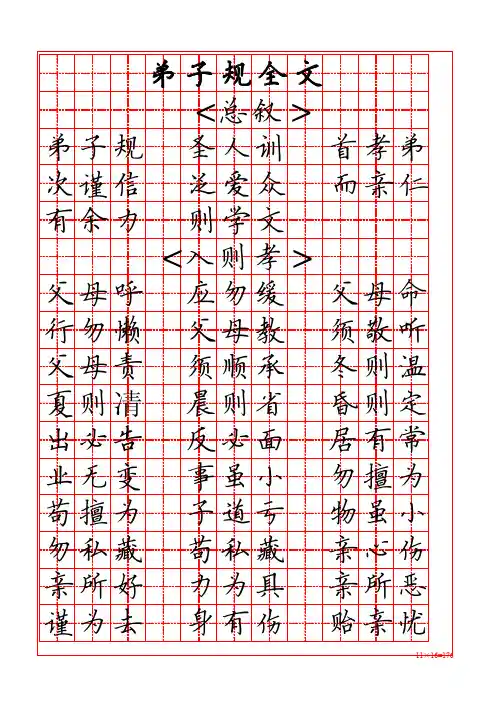 弟子规全文
<总叙>
弟子规 圣人训 首孝弟
次谨信 泛爱众 而亲仁
有余力 则学文
<入则孝>
父母呼 应勿缓 父母命
行勿懒 父母教 须敬听
父母责 须顺承 冬则温
夏则凊 晨则省 昏则定
出必告 反必面 居有常
业无变 事虽小 勿擅为
苟擅为 子道亏 物虽小
勿私藏 苟私藏 亲心伤
亲所好 力为具 亲所恶
谨为去 身有伤 贻亲忧
11×16=176